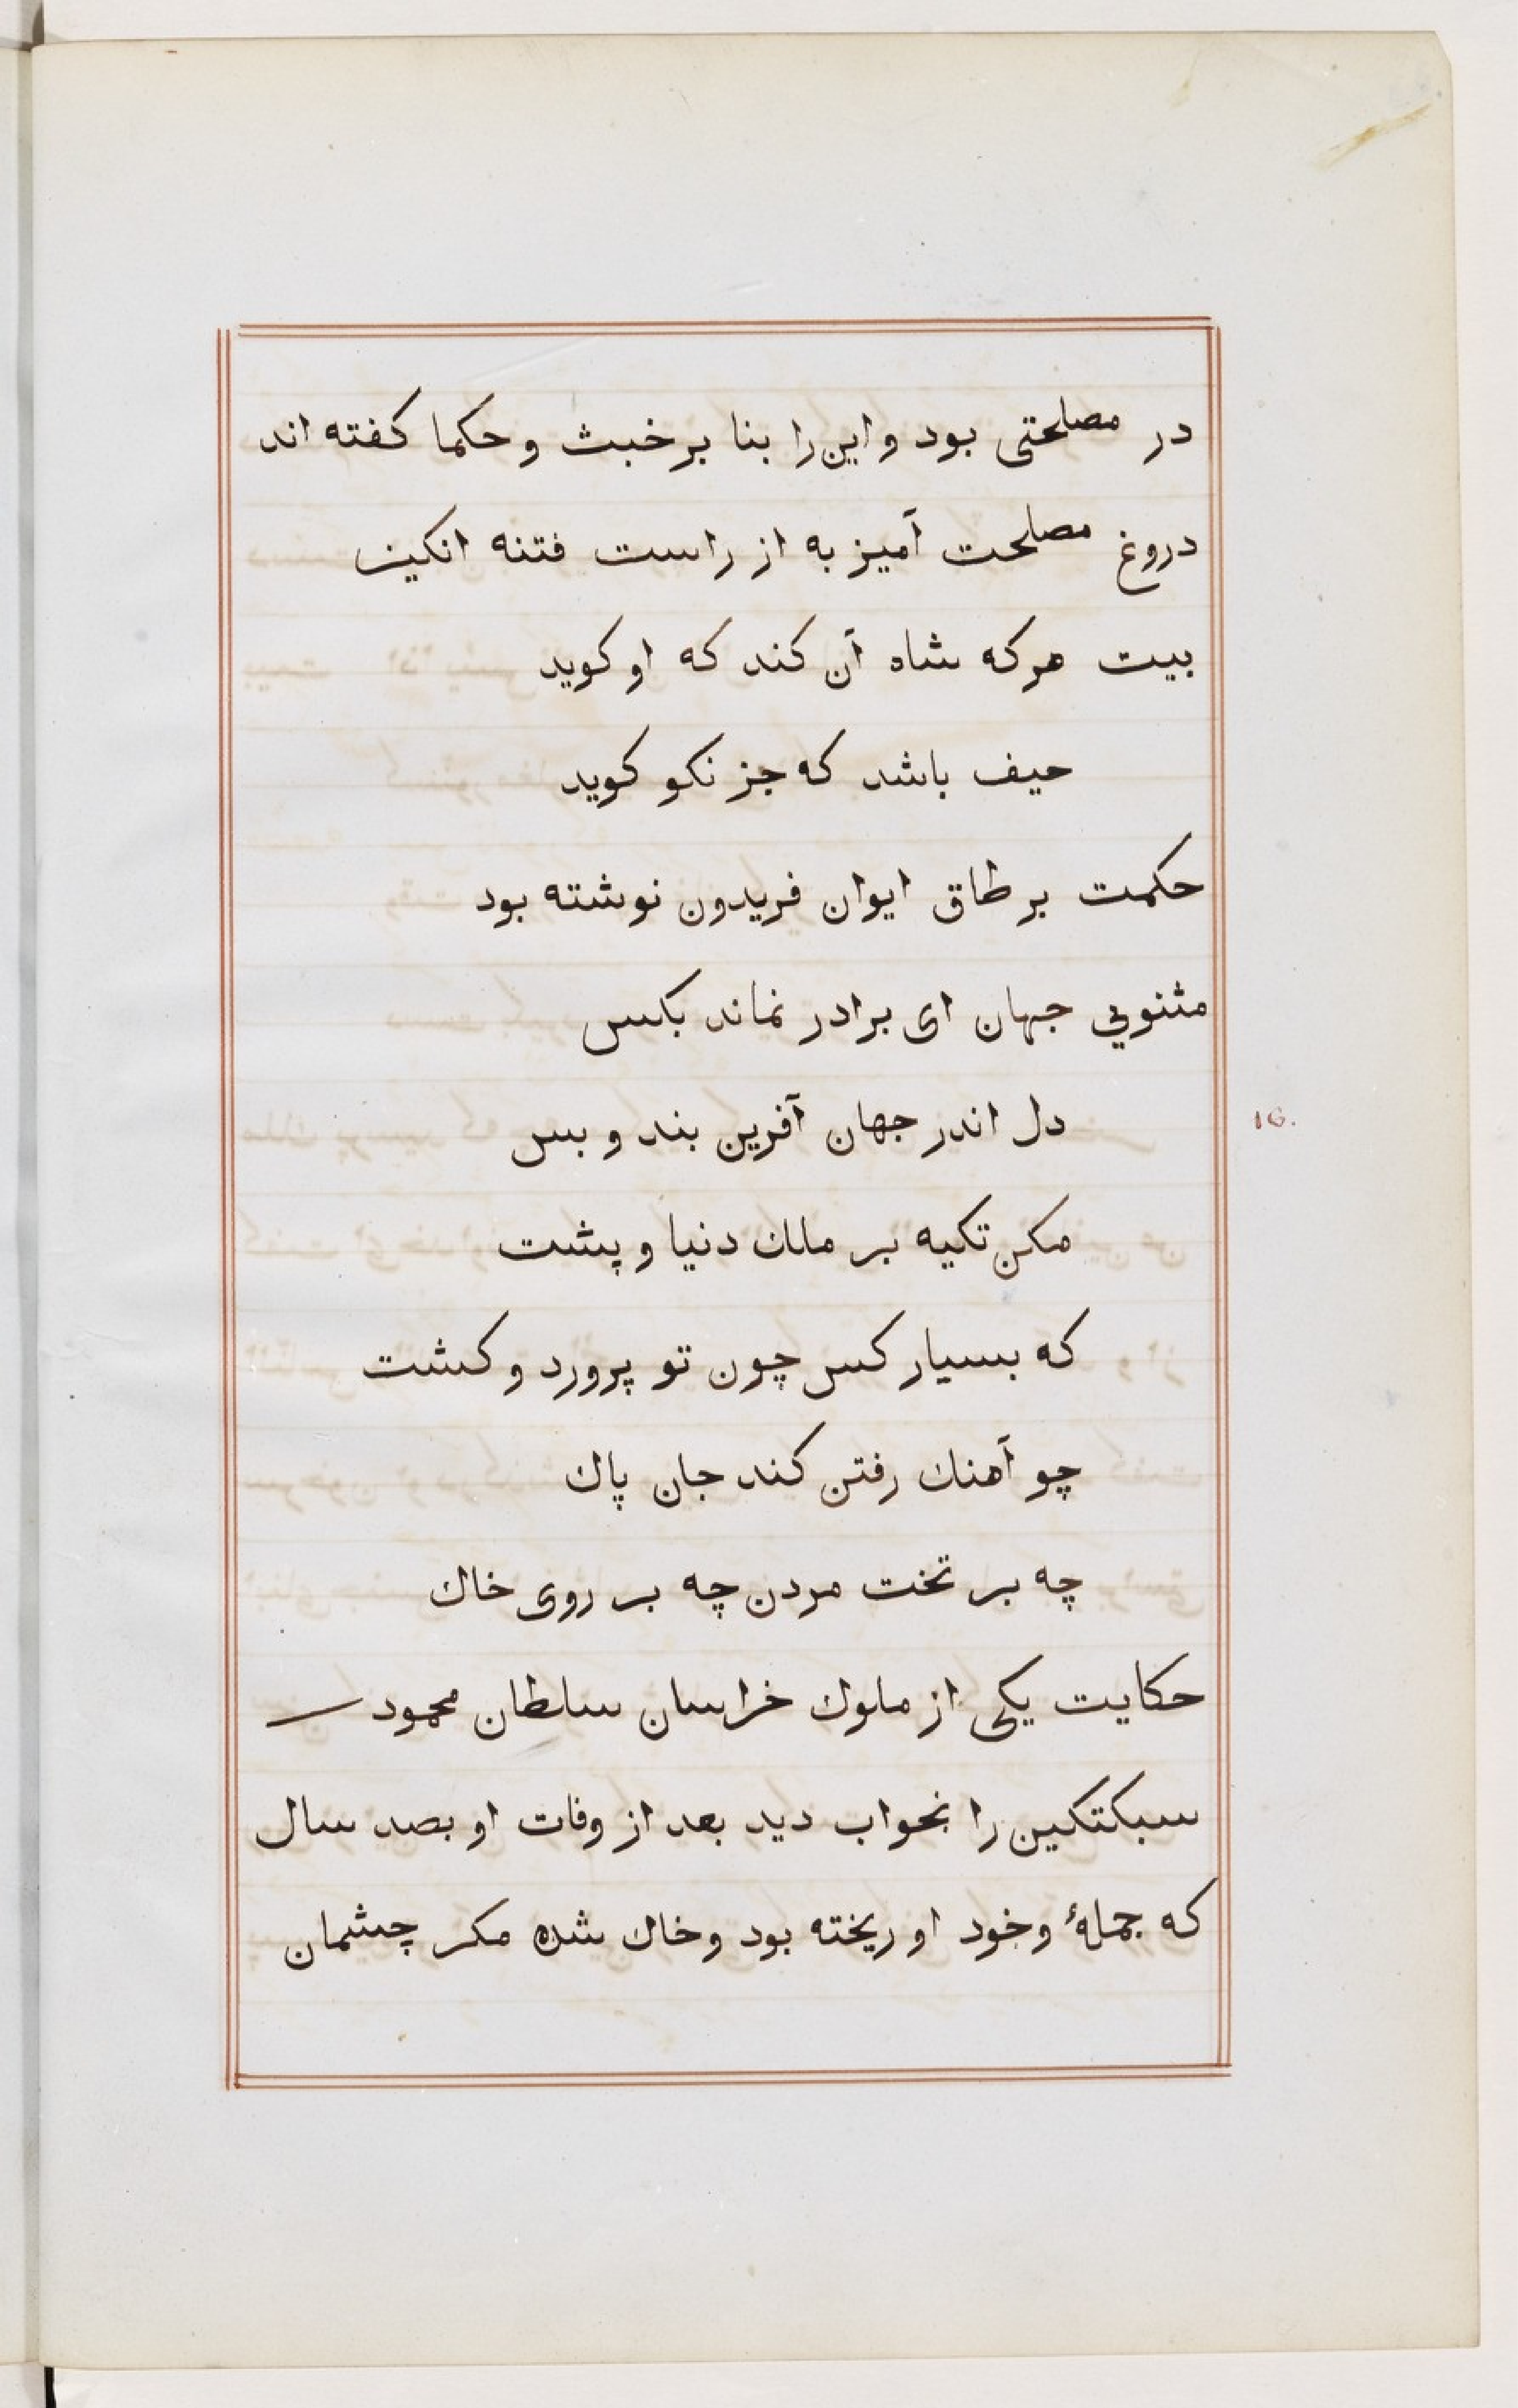 در مصلحتی بود و این را بنا بر خبث و حکما کفته اند
دروغ مصلحت آمیز به از راست فتنه انکیز
بیت هر که شاه آن کند که او کوید
حیف باشد که جز نکو کوید
حکمت بر طاق ایوان فریدون نوشته بود
مثنوي جهان ای برادر نماند بکس
دل اندر جهان آفرین بند و بس
16.
مکن تکیه بر ملك دنیا و پشت
که بسیار کس چون تو پرورد و کشت
چو آهنك رفتن کند جان پاك
چه بر تخت مردن چه بر روی خاك
حکایت یکی از ملوك خراسان سلطان محمود
سبکتکین را بخواب دید بعد از وفات او بصد سال
که جملهٔ وخود او ریخته بود و خاك شده مکر چشمان